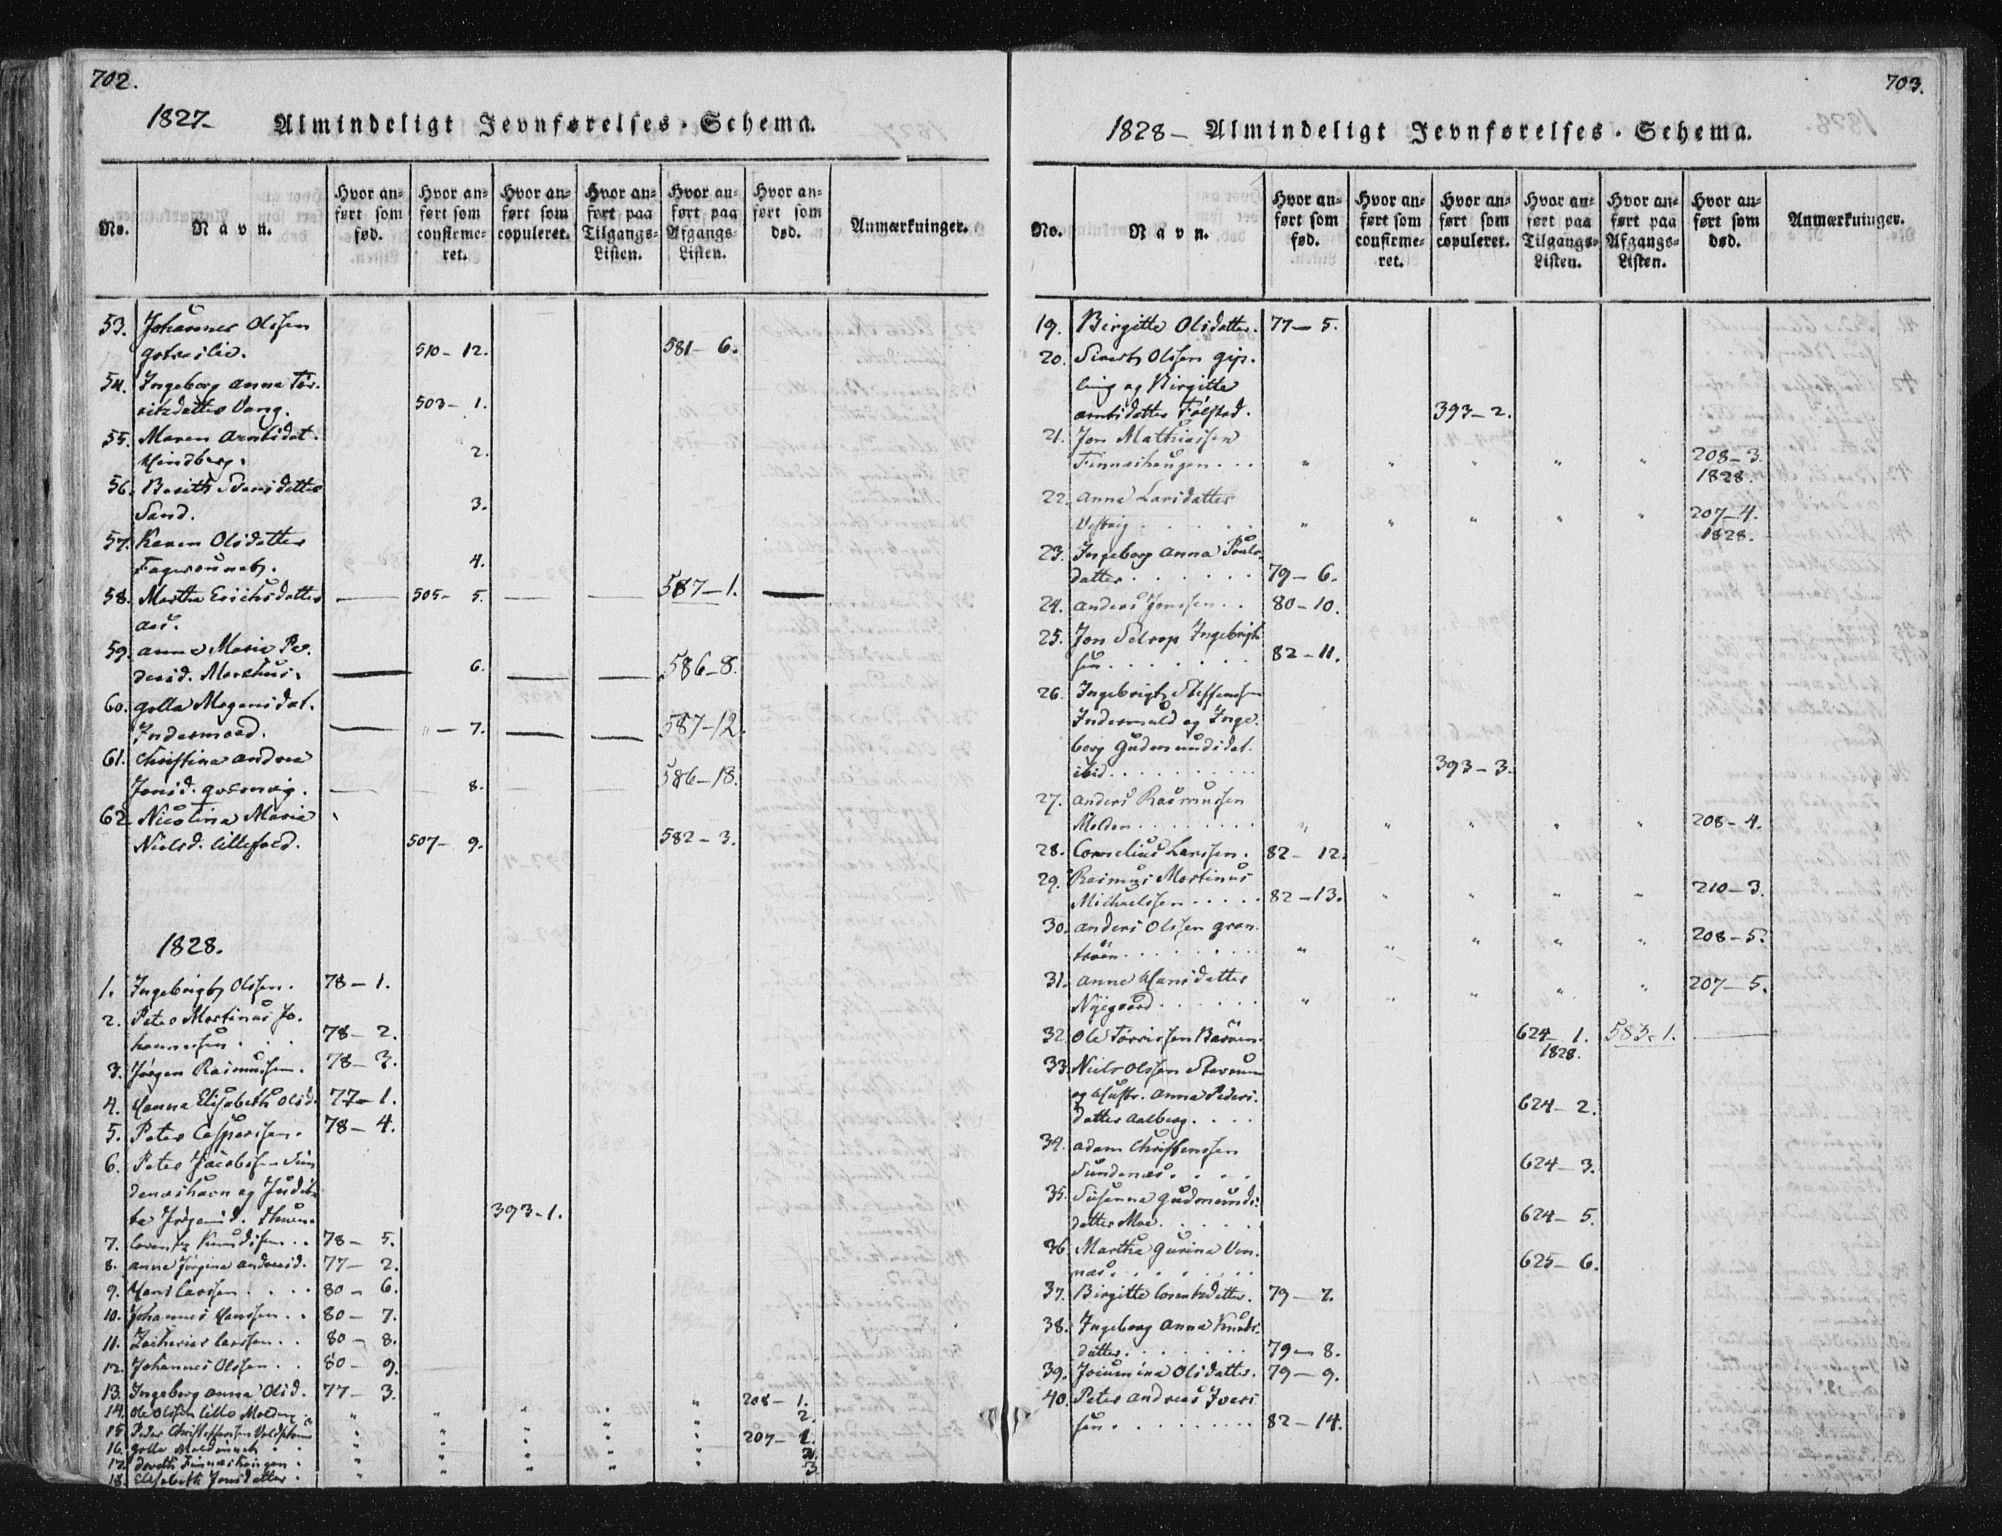 702.
1827- Almindeligt Jevnførelses-Schema.
No. Navn. Hvor anført som fød. Hvor anført som confirmeret. Hvor anført som copuleret. Hvor anført paa Tilgangs-Listen. Hvor anført paa Afgangs-Listen. Hvor anført som død. Anmærkninger.
53. Johannes Olssen
510-12. 581-6.
54. Ingeborg Anna
Vang. 503-1.
55. Maren Arntsdat.
2.
56. Berith Svensdatter
Sand. 3.
57. Karen Olsdatter
4.
58. Martha Erichsdatter — 505-5. — — 587-1. —
Aas.
59. Anna Maria Pe-
dersd. — 6. — — 586-8.
60. Golla Mogensdat.
Indermoed. — " - 7. — — 587-12.
61. Christina Andrea
Jonsd. — 8. — — 586-18.
62. Nicolina Maria
Nielsd. 507-9. 582-3.
1828.
1. Ingebrigt Olssen. 78-1.
2. Peter Martinus Jo-
hannessen . . . 78-2.
3. Jørgen Rasmussen. 78-3.
4. Hanna Elisabeth Olsd. 77-1.
5. Peter Caspersen. 78-4.
6. Peter Jacobsen Sun
denæshavn og Judit-
393-1.
7. Lorentz Knudssen . . 78-5.
8. Anna Jørgina Andreasd. 77-2.
9. Hans Larssen . . . . 80-6.
10. Johannes Hanssen . . 80-7.
11. Zacharias Larssen . . 80-8.
12. Johannes Olssen . . 80-9.
13. Ingeborg Anna Olsd. 77-3.
14. Ole Olssen Lille Molden " " " " " 208-1.
15. Peder Christophersen " " " " " 2.
16. Golla " " " " " 207-1.
17. Doroth Finnæshaugen . " " " " " 2.
18. Elisabeth Jonsdatter . " " " " " 3.
703.
1828- Almindeligt Jevnførelses-Schema.
No. Navn. Hvor anført som fød. Hvor anført som confirmeret. Hvor anført som copuleret. Hvor anført paa Tilgangs-Listen. Hvor anført paa Afgangs-Listen. Hvor anført som død. Anmærkninger.
19. Birgitte Olsdatter. 77-5.
20. Sivert Olssen Gip-
ling og Birgitta
Arntsdatter Følstad. 393-2.
21. Jon Mathiassen
Finnæshaugen . . . " " " " " 208-3.
1828.
22. Anne Larsdatter
" " " " " 207-4.
1828.
23. Ingeborg Anna Pouls-
datter . . . . . . 79-6.
24. Anders Jonssen . . 80-10.
25. Jon Selrop Ingebrigt-
sen . . . . . . . 82-11.
26. Ingebrigt Steffenssen
og Inge-
borg Gudmundsdat.
ibid . . . . . . . . 393-3.
27. Anders Rasmussen
Molden . . . . . . . . " " " " " 208-4.
28. Cornelius Larssen. 82-12.
29. Rasmus Martinus
Michaelssen . . . . . 82-13. " " " " 210-3.
30. Anders Olssen Gran-
trøen . . . . . . . . " " " " " 208-5.
31. Anne Hansdatter
Nÿegaard . . . . . . " " " " " 207-5.
32. Ole Torrissen 624-1. 583-1. —
1828.
33. Niels Olssen Stavrum
og Hustr. Anna Peders-
datter Aalberg. . . . 624-2.
34. Adam Christenssen
Sundenæs. . . . . 624-3.
35. Susanna Gudmunds-
datter Moe. . . . . . 624-5.
36. Martha Gurina Ven-
næs. . . . . . . . 625-6.
37. Birgitte Lorentzdatter. 79-7.
38. Ingeborg Anna Knuds-
datter. . . . . . . 79-8.
39. Olsdatter. 79-9.
40. Peter Andreas Ivers-
sen . . . . . . . . 82-14.